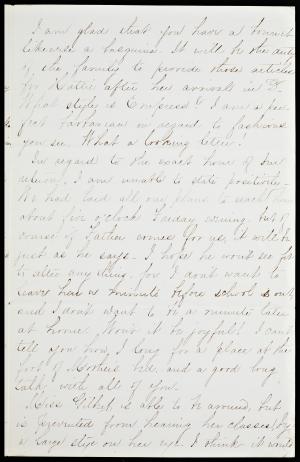 I am glad that you have a bonnet
likewise a basquine. It will be the duty
of the family to provide those articles
for Hattie after her arrival in
What style is Empress? I am a per-
fect barbarian in regard to fashions
you see. What a looking letter.
In regard to the exact hour of our
return, I am unable to state positively.
We had laid all our plans to reach home
about five o'clock Tuesday evening but of
course if Father comes for us, it will be
just as he says. I hope he wont see fit
to alter any thing, for I don't want to
leave here a minute before school is out,
and I don't want to be a minute later
at home. Won't it be joyful! I can't
tell you how I long for a place at the
foot of Mother's bed, and a good long
talk with all of you.
Miss Gilbert is able to be around, but
is prevented from hearing her classes by
a large stye on her eye. I think it would